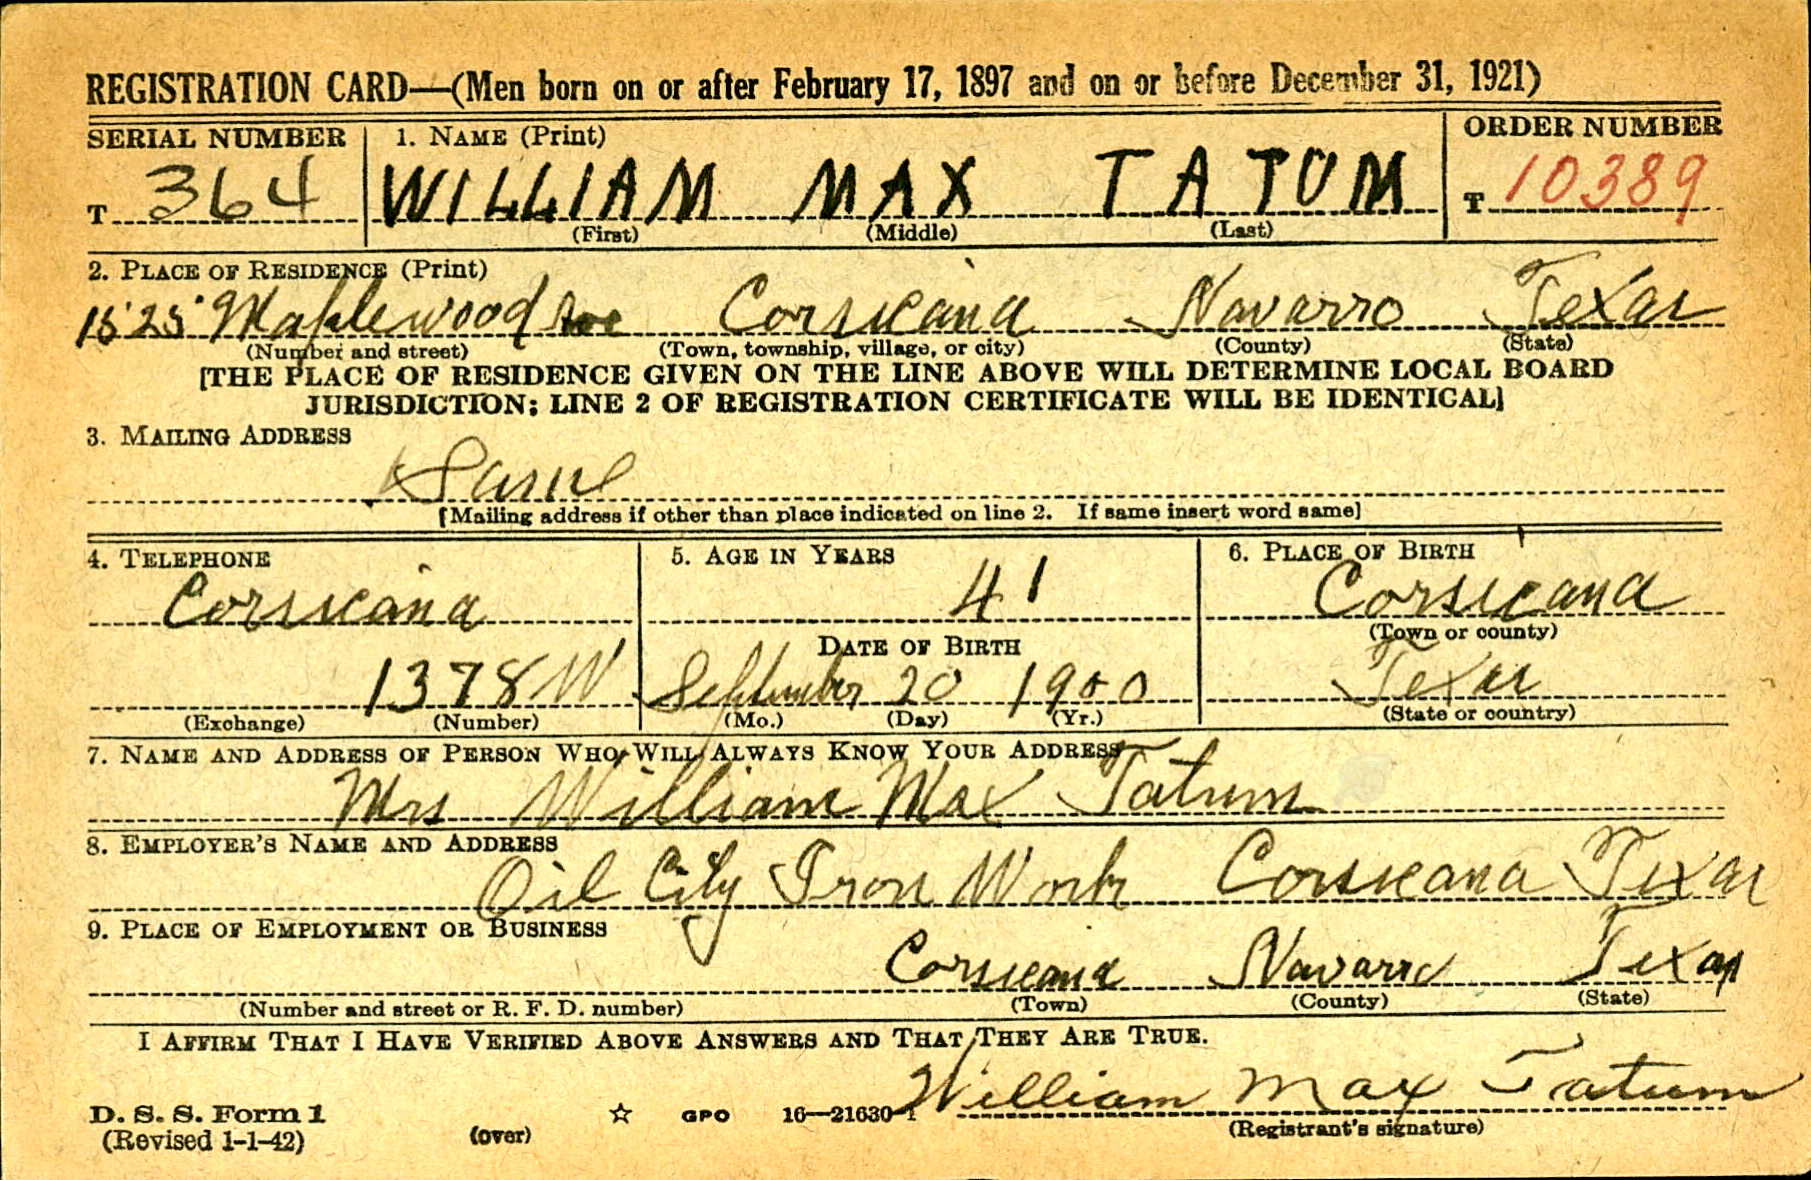 REGISTRATION CARD—(Men born on or after February 17, 1897 and on or before December 31, 1921)
SERIAL NUMBER 1. NAME (Print) ORDER NUMBER
T 364 WILLIAM MAX TATUM T 10389
(First) (Middle) (Last)
2. PLACE OF RESIDENCE (Print)
1525 Maplewood Ave Corsicana Navarro Texas
(Number and street) (Town, township, village, or city) (County) (State)
[THE PLACE OF RESIDENCE GIVEN ON THE LINE ABOVE WILL DETERMINE LOCAL BOARD
JURISDICTION; LINE 2 OF REGISTRATION CERTIFICATE WILL BE IDENTICAL]
3. MAILING ADDRESS
Same
[Mailing address if other than place indicated on line 2. If same insert word same]
4. TELEPHONE 5. AGE IN YEARS 6. PLACE OF BIRTH
Corsicana 41 Corsicana
DATE OF BIRTH (Town or county)
1378W September 20 1900 Texas
(Exchange) (Number) (Mo.) (Day) (Yr.) (State or country)
7. NAME AND ADDRESS OF PERSON WHO WILL ALWAYS KNOW YOUR ADDRESS
Mrs William Max Tatum
8. EMPLOYER'S NAME AND ADDRESS
Oil City Iron Work Corsicana Texas
9. PLACE OF EMPLOYMENT OR BUSINESS
Corsicana Navarro Texas
(Number and street or R. F. D. number) (Town) (County) (State)
I AFFIRM THAT I HAVE VERIFIED ABOVE ANSWERS AND THAT THEY ARE TRUE.
William Max Tatum
D. S. S. Form 1 ☆ GPO 16—21630-1
(Revised 1-1-42) (over) (Registrant's signature)